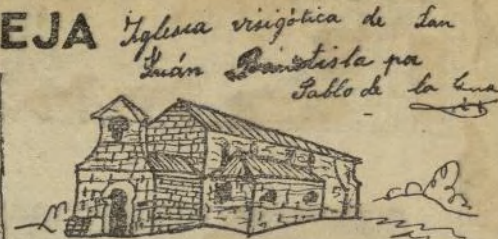 EJA Iglesia visigótica de San
Juán Bautista por
Pablo de la